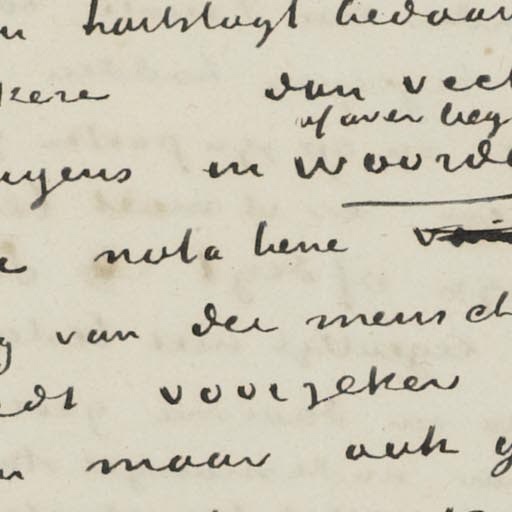 n hartstogt bedaar
kere dan veel
of over beg
uygens en woorde
e nota bene
g van den mensch
edt voorzeker
n maar ook g